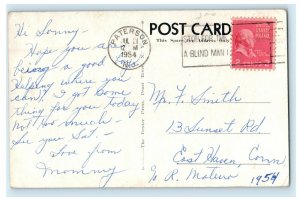 POST CARD
PATERSON
12 M
1954
N.J.
A BLIND MAN
Hi Sonny -
Hope you are
being a good
helping where you
can. I got some
thing for you today
Not too much -
See you Sat. -
Love from
Mommy
Mr. F. Smith
13 Sunset Rd.
East Haven, Conn
R. Maturo
1954